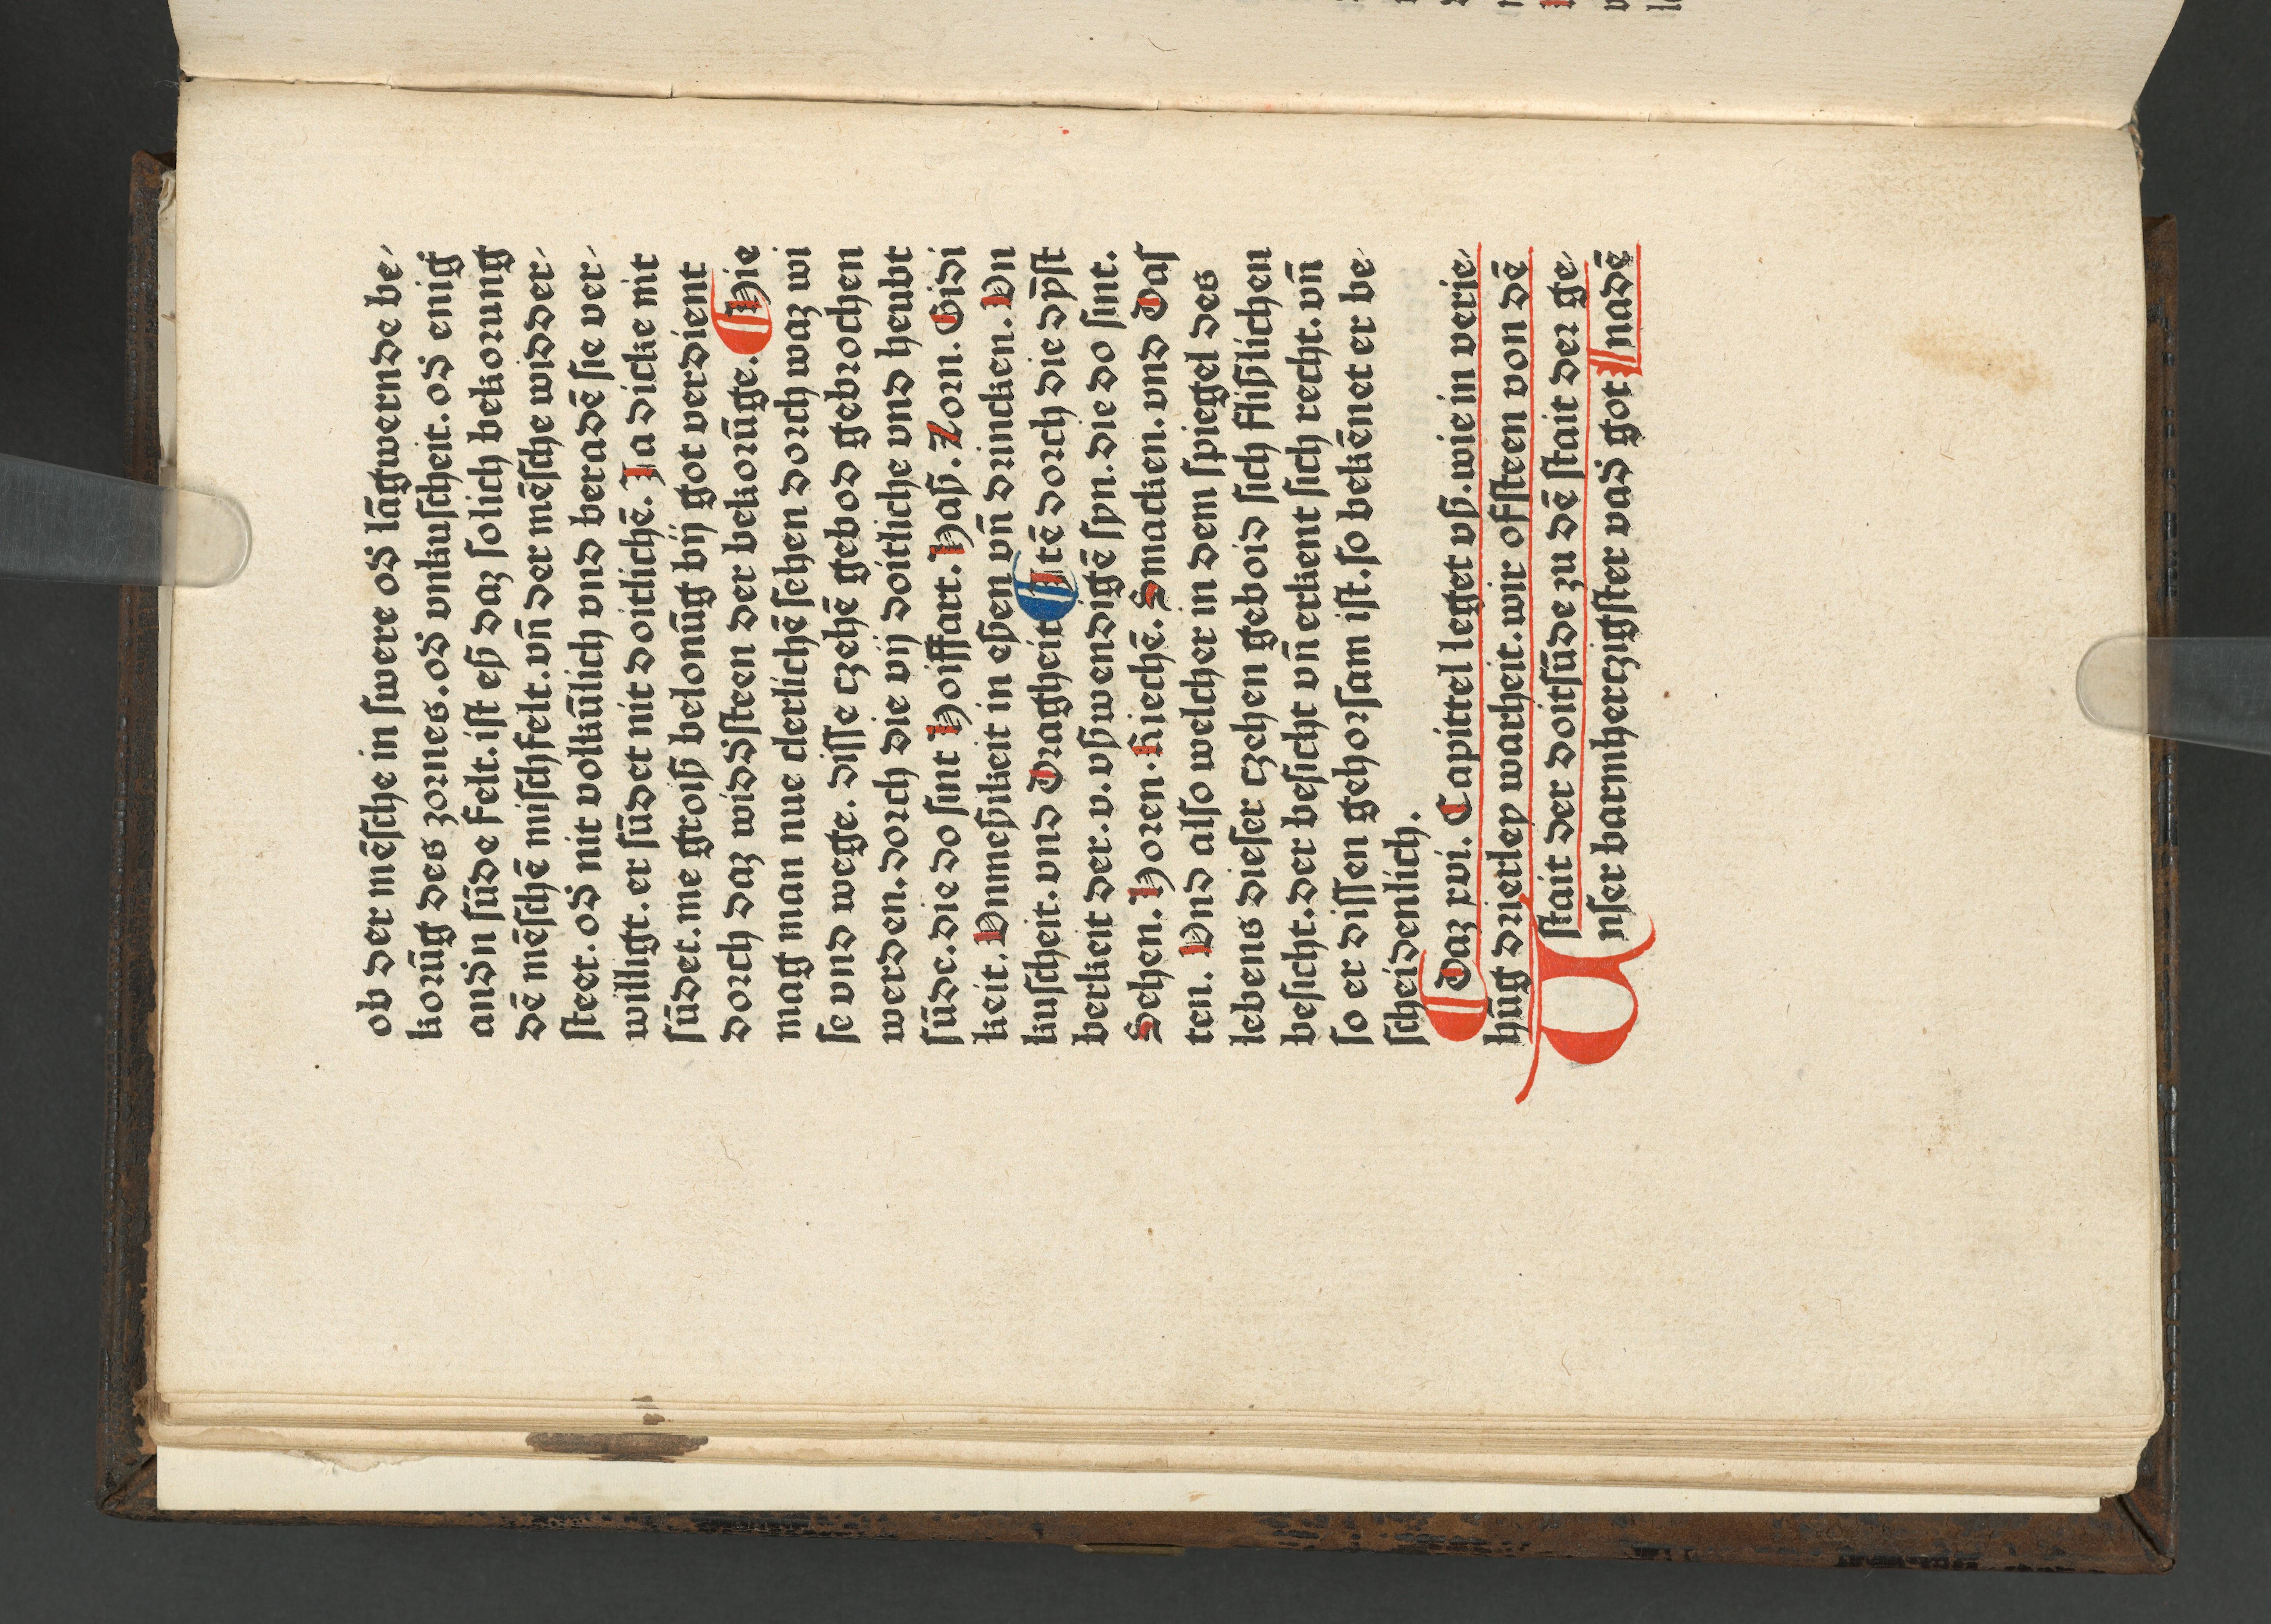 ob der mēſche in ſwere od̄ lāgwernde be⸗
korūg des zornes. od̄ vnkuſcheit. od̄ enig
and̄n ſūde felt. iſt eß daz ſolich bekorung
dē mēſchē miſchfelt. vn̄ der mēſche widder⸗
ſteet. od̄ nit volkūlich vnd beradē ſie ver⸗
willigt. er ſūdet nit doitlichē. Ja dicke nit
ſūdet. me groiß belonūg bij got verdient
dorch daz widd̄ſteen der bekorūge. Hie
mag man nue clerlichē ſehen dorch waz wi
ſe vnd wege. diſſe czehē gebod gebrochen
werden. dorch die vij doitliche vnd heubt
ſūde. die do ſint Hoiffart. Haß. Zorn. Gidi
keit. Vnmeßikeit in eßen vn̄ drincken. Vn
kuſcheit. vnd Dragheit Itē dorch die dp̄ſt
berkeit der. v. vßwendigē ſyn. die do ſint.
Sehen. Horen. Riechē. Smacken. vnd Daſ
ten. Vnd alſo welcher in dem ſpiegel des
lebens dieſer czehen geboid ſich flißlichen
beſicht. der beſicht vn̄ erkent ſich recht. vn̄
ſo er diſſen gehorſam iſt. ſo bekēnet er be⸗
ſcheidenlich.
Daz xvi. Capittel leget vß. wie in verie⸗
hūg drierley warheit. wir offſteen von dē
ſtait der doitſūde zu dē ſtait der ge⸗
nſer barmherczigſter vad̄ got nadē